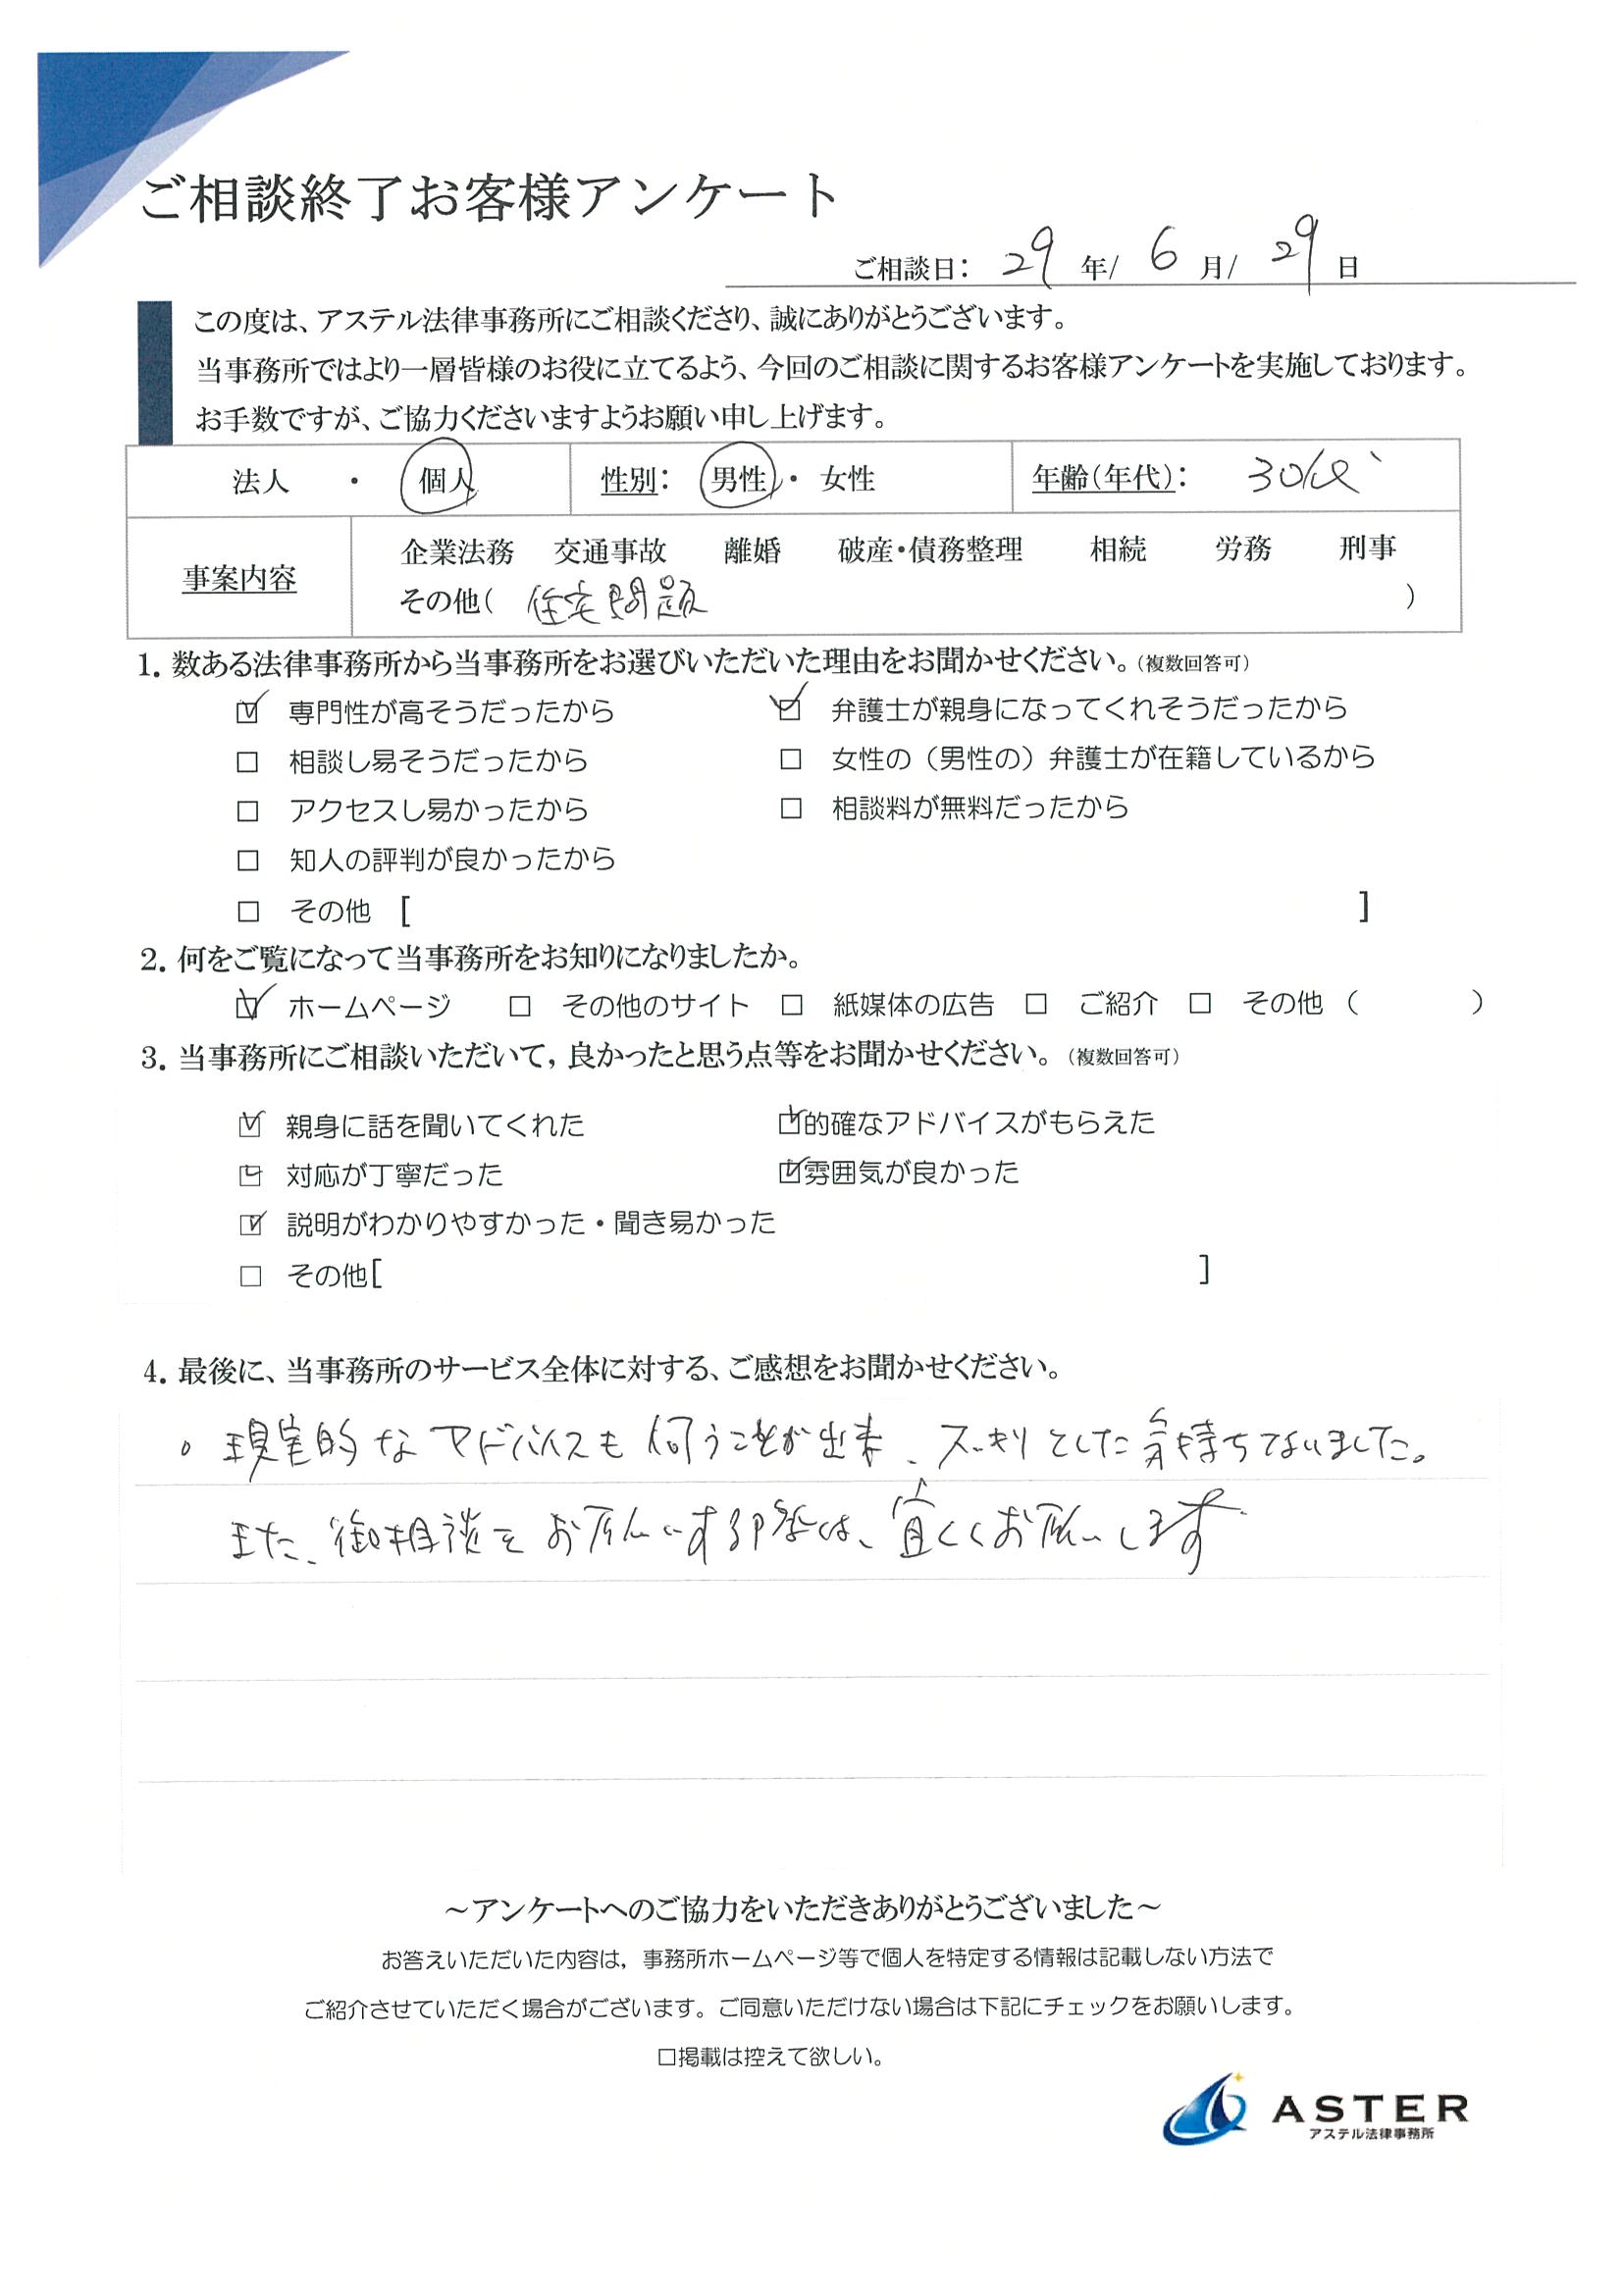 ご相談終了お客様アンケート
ご相談日: 29 年/ 6 月/ 29 日
この度は、アステル法律事務所にご相談くださり、誠にありがとうございます。
当事務所ではより一層皆様のお役に立てるよう、今回のご相談に関するお客様アンケートを実施しております。
お手数ですが、ご協力くださいますようお願い申し上げます。
法人 ・ 個人 性別: 男性 ・ 女性 年齢(年代): 30代
事案内容
企業法務 交通事故 離婚 破産・債務整理 相続 労務 刑事
その他( 住宅問題 )
1. 数ある法律事務所から当事務所をお選びいただいた理由をお聞かせください。(複数回答可)
☑ 専門性が高そうだったから ☑ 弁護士が親身になってくれそうだったから
□ 相談し易そうだったから □ 女性の(男性の)弁護士が在籍しているから
□ アクセスし易かったから □ 相談料が無料だったから
□ 知人の評判が良かったから
□ その他 [ ]
2. 何をご覧になって当事務所をお知りになりましたか。
☑ ホームページ □ その他のサイト □ 紙媒体の広告 □ ご紹介 □ その他 ( )
3. 当事務所にご相談いただいて, 良かったと思う点等をお聞かせください。(複数回答可)
☑ 親身に話を聞いてくれた ☑的確なアドバイスがもらえた
☑ 対応が丁寧だった ☑雰囲気が良かった
☑ 説明がわかりやすかった・聞き易かった
□ その他[ ]
4. 最後に、当事務所のサービス全体に対する、ご感想をお聞かせください。
。現実的なアドバイスも伺うことが出来、スッキリとした気持ちでいました。
また、御相談をお願いする際は、宜しくお願いします
～アンケートへのご協力をいただきありがとうございました～
お答えいただいた内容は, 事務所ホームページ等で個人を特定する情報は記載しない方法で
ご紹介させていただく場合がございます。ご同意いただけない場合は下記にチェックをお願いします。
□掲載は控えて欲しい。
ASTER
アステル法律事務所